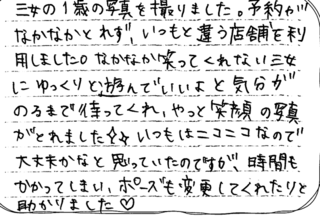 三女の1歳の写真を撮りました。予約が
なかなかとれず、いつもと違う店舗を利
用しました。なかなか笑ってくれない三女
にゆっくりと遊んでいいよと気分が
のるまで待ってくれ、やっと笑顔の写真
がとれました✧✧いつもはニコニコなので
大丈夫かなと思っていたのですが、時間も
かかってしまい、ポーズも変更してくれたりと
助かりました♡